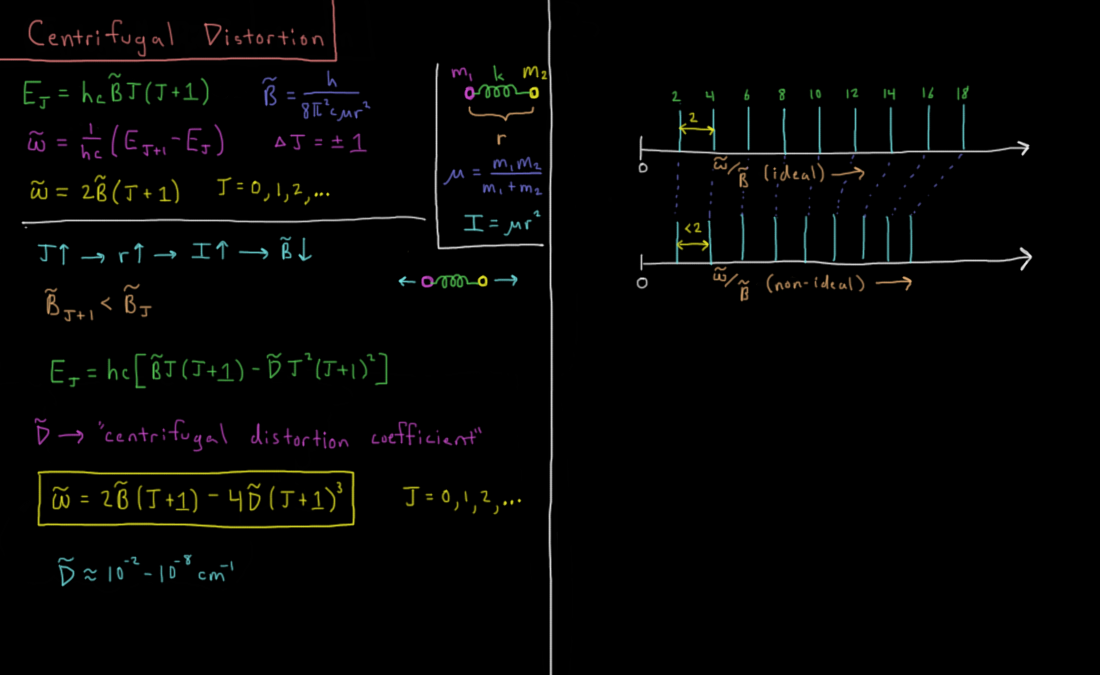 Centrifugal Distortion
E_J = hcB̃J(J+1)    B̃ = h/(8π²cμr²)
ω̃ = 1/hc (E_J+1 - E_J)    ΔJ = ±1
ω̃ = 2B̃(J+1)    J = 0,1,2,...
m₁ k m₂
r
μ = m₁m₂/(m₁+m₂)
I = μr²
J↑ → r↑ → I↑ → B̃↓
B̃_J+1 < B̃_J
E_J = hc[B̃J(J+1) - D̃J²(J+1)²]
D̃ → "centrifugal distortion coefficient"
ω̃ = 2B̃(J+1) - 4D̃(J+1)³    J = 0,1,2,...
D̃ ≈ 10⁻² - 10⁻⁸ cm⁻¹
2 4 6 8 10 12 14 16 18
2
0
ω̃/B̃ (ideal) →
<2
0
ω̃/B̃ (non-ideal) →